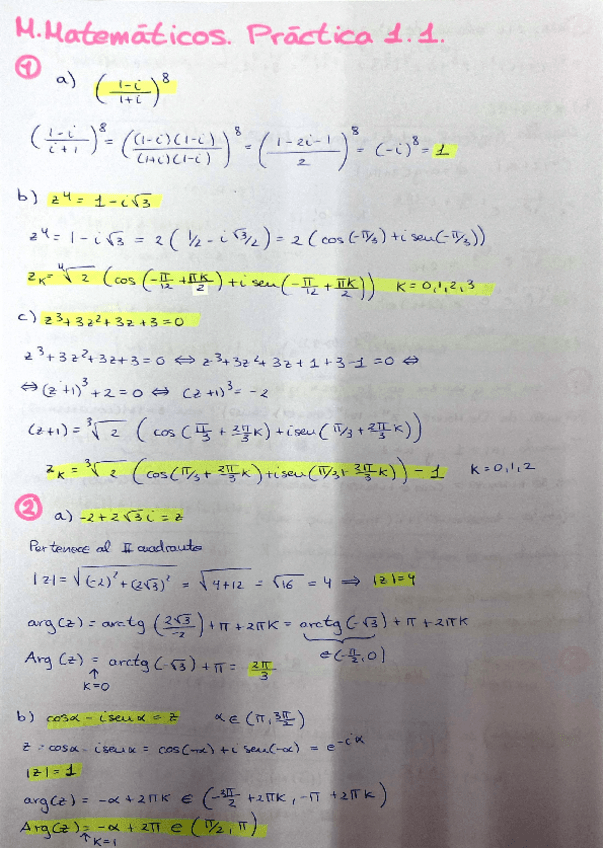 M.Matemáticos. Práctica 1.1.
1
a) ((1-i)/(1+i))^8
((1-i)/(i+1))^8 = (((1-i)(1-i))/((1+i)(1-i)))^8 = ((1-2i-1)/2)^8 = (-i)^8 = 1
b) z^4 = 1-i√3
z^4 = 1-i√3 = 2(1/2 - i √3/2) = 2(cos(-π/3)+i sen(-π/3))
z_K = ⁴√2 (cos(-π/12 + πK/2) + i sen(-π/12 + πK/2)) K=0,1,2,3
c) z³+3z²+3z+3=0
z³+3z²+3z+3=0 ⇔ z³+3z²+3z+1+3-1=0 ⇔
⇔ (z+1)³+2=0 ⇔ (z+1)³=-2
(z+1) = ³√2 (cos(π/3 + 2π/3 K)+i sen(π/3+2π/3 K))
z_K = ³√2 (cos(π/3 + 2π/3 K)+i sen(π/3+2π/3 K)) - 1 K=0,1,2
2
a) -2+2√3 i = z
Pertenece al II cuadrante
|z| = √((-2)²+(2√3)²) = √(4+12) = √16 = 4 ⇒ |z|=4
arg(z) = arctg(2√3/-2)+π+2πK = arctg(-√3)+π+2πK
∈(-π/2,0)
Arg(z) = arctg(-√3)+π = 2π/3
↑
K=0
b) cosα - i senα = z α∈(π, 3π/2)
z = cosα - i senα = cos(-α)+i sen(-α) = e^-iα
|z|=1
arg(z) = -α+2πK ∈ (-3π/2 +2πK, -π+2πK)
Arg(z) = -α+2π ∈ (π/2, π)
↑K=1